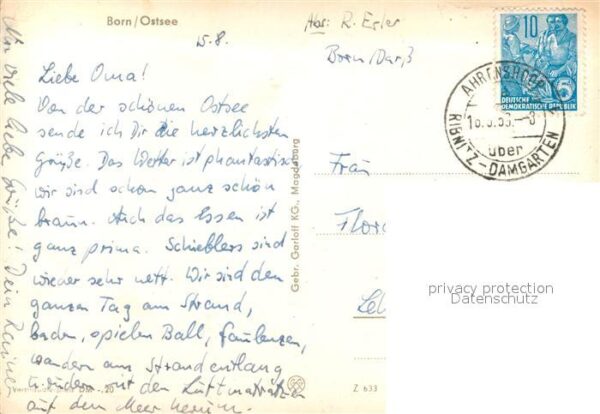 Born/Ostsee
15.8.
Abs: R. Erler
Born/Darß
Liebe Oma!
Von der schönen Ostsee
sende ich Dir die herzlichsten
Grüße. Das Wetter ist phantastisch
wir sind schon ganz schön
braun. Auch das Essen ist
ganz prima. Schieblers sind
wieder sehr nett. Wir sind den
ganzen Tag am Strand,
baden, spielen Ball, faulenzen,
wandern am Strand entlang
u. rudern mit den Luftmatratzen
auf dem Meer herum.
Nun viele liebe Grüße! Dein Rainer
Gebr. Garloff KG., Magdeburg
Z 633
10
5
DEUTSCHE
DEMOKRATISCHE REPUBLIK
AHRENSHOOP
über
RIBNITZ-DAMGARTEN
Frau
Flor
privacy protection
Datenschutz